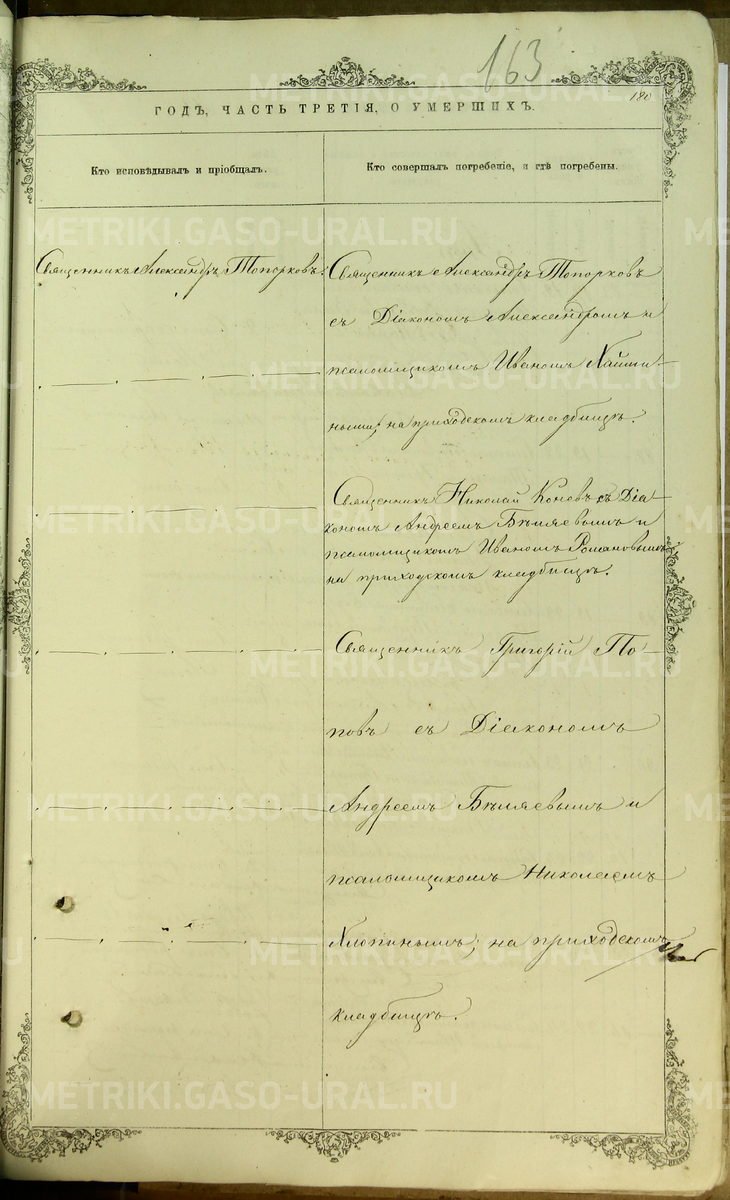 163
180
ГОДЪ, ЧАСТЬ ТРЕТІЯ, О УМЕРШИХЪ.
Кто исповѣдывалъ и пріобщалъ.
Кто совершалъ погребеніе, и гдѣ погребены.
Священникъ Александръ Топорковъ.
Священникъ Александръ Топорковъ
съ Діакономъ Александромъ и
псаломщикомъ Иваномъ
на приходскомъ кладбищѣ.
Священникъ Николай Коневъ съ Діа-
кономъ Андреемъ Бѣляевымъ и
псаломщикомъ Иваномъ Романовымъ
на приходскомъ кладбищѣ.
Священникъ Григорій По-
повъ съ Діакономъ
Андреемъ Бѣляевымъ и
псаломщикомъ Николаемъ
Хлопинымъ, на приходскомъ
кладбищѣ.
METRIKI.GASO-URAL.RU